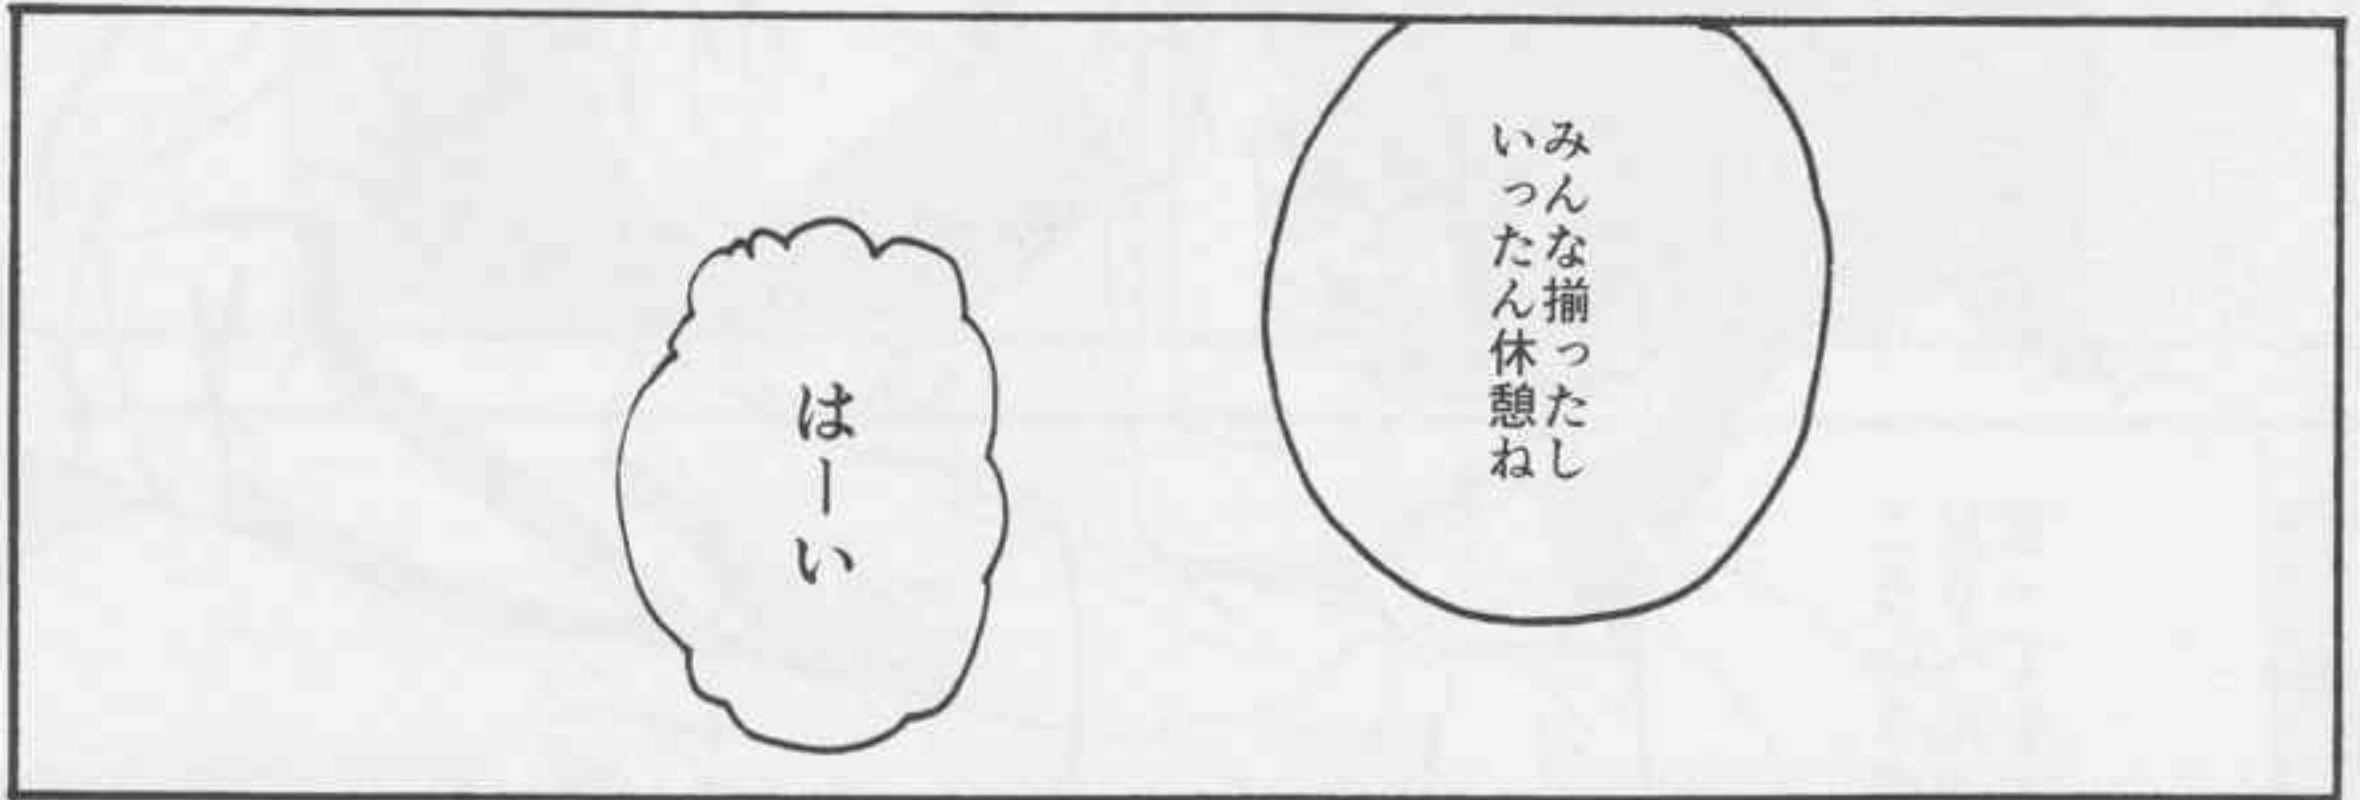 みんな揃ったし
いったん休憩ね
はーい